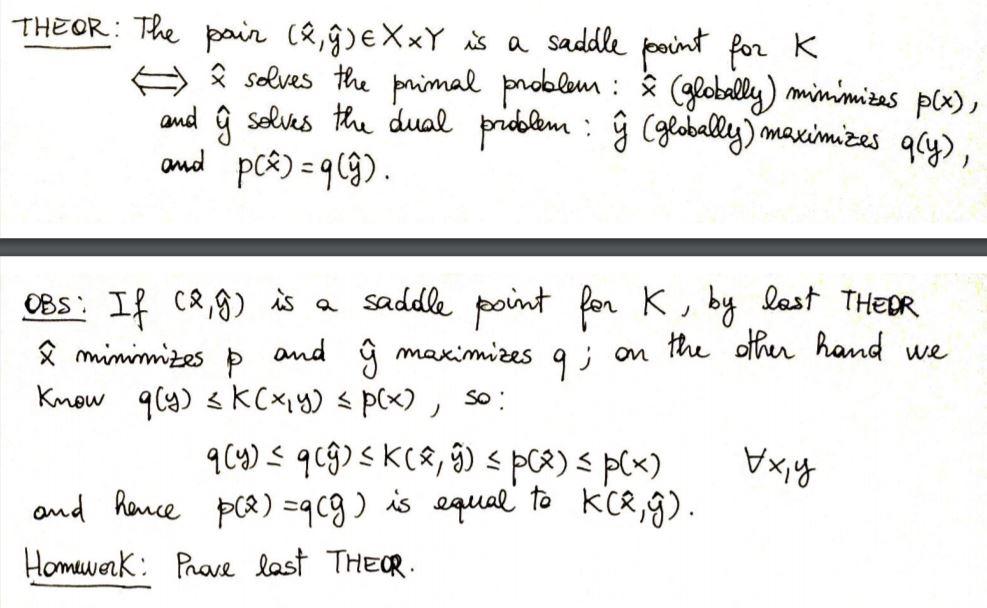 THEOR: The pair (x̂,ŷ)∈X×Y is a saddle point for K
⟺ x̂ solves the primal problem: x̂ (globally) minimizes p(x),
and ŷ solves the dual problem: ŷ (globally) maximizes q(y),
and p(x̂)=q(ŷ).
OBS: If (x̂,ŷ) is a saddle point for K, by last THEOR
x̂ minimizes p and ŷ maximizes q; on the other hand we
know q(y) ≤ K(x,y) ≤ p(x), so:
q(y) ≤ q(ŷ) ≤ K(x̂,ŷ) ≤ p(x̂) ≤ p(x) ∀x,y
and hence p(x̂)=q(ŷ) is equal to K(x̂,ŷ).
Homework: Prove last THEOR.